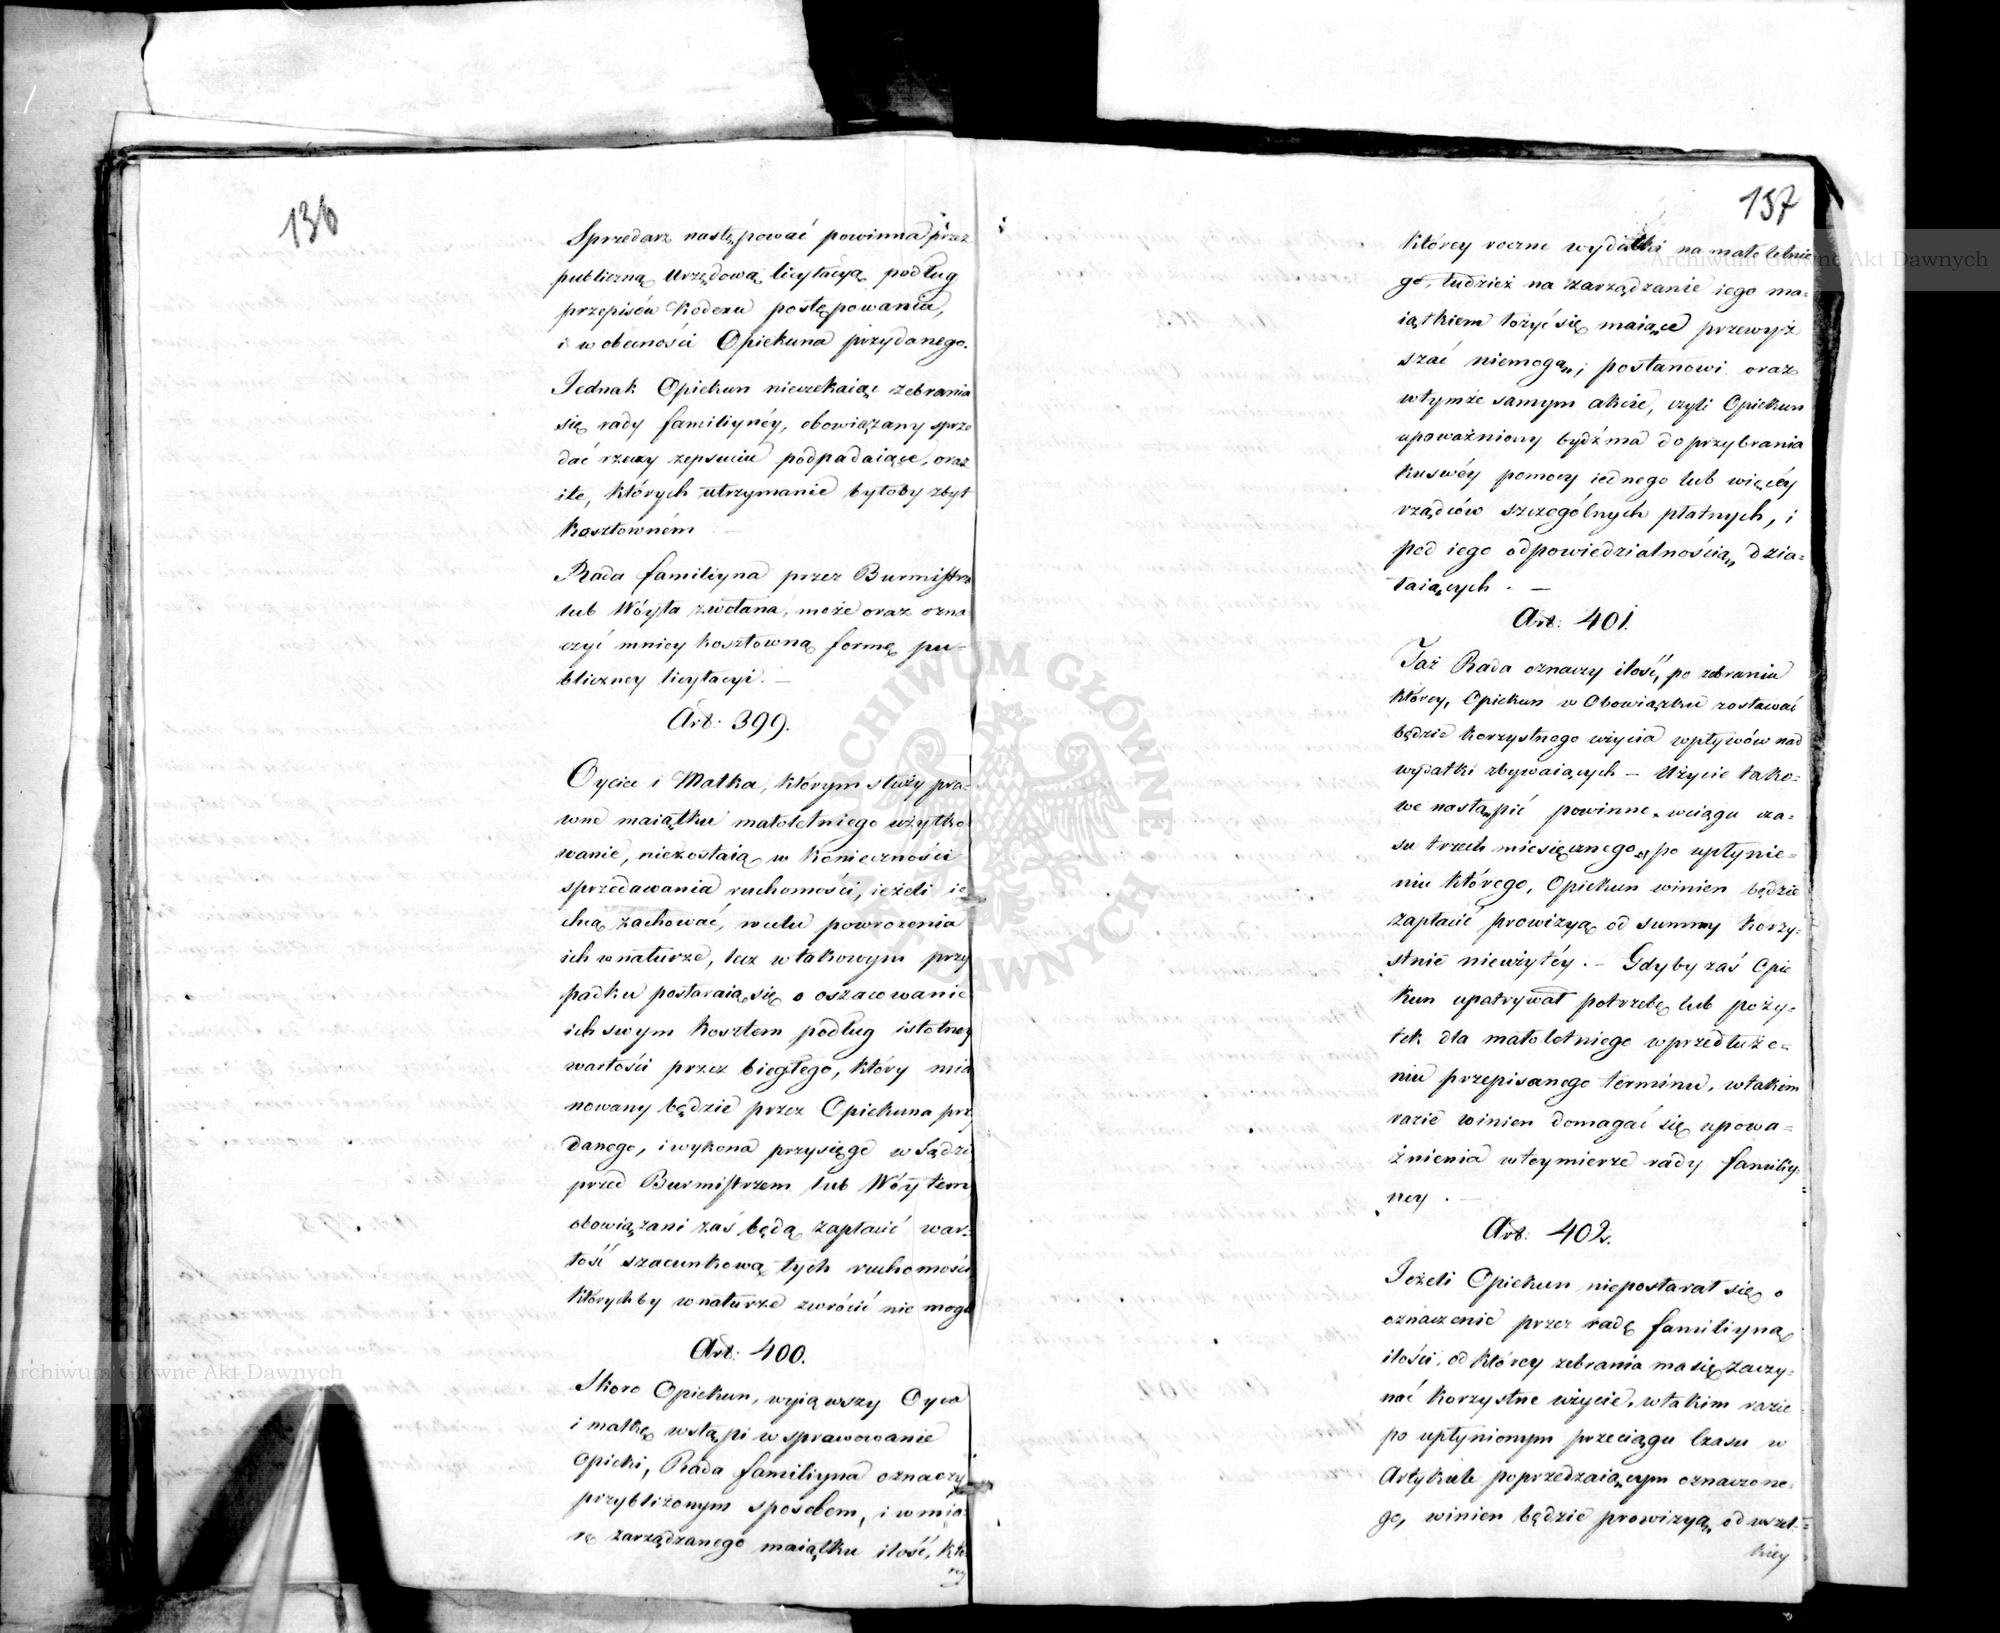 136
Sprzedarz następować powinna przez
publiczną Urzędową licytacyą podług
przepisów Kodexu postępowania,
i w obecności Opiekuna przydanego.
Jednak Opiekun nieczekaiąc zebrania
się rady familiynéy, obowiązany sprze
dać rzeczy zepsuciu podpadaiące, oraz
ite, których utrzymanie byłoby zbyt
Kosztowném —
Rada familiyna przez Burmistrza
lub Wóyta zwołana, może oraz ozna
czyć mniey kosztowną formę pu-
bliczney licytacyi. —
Art: 399.
Oyciec i Matka, którym służy pra-
wne maiątku małoletniego użytko
wanie, niezostaią w Konieczności
sprzedawania ruchomości, ieżeli ie
chcą zachować, w celu powrócenia
ich w naturze, lecz w takowym przy
padku postaraią się o oszacowanie
ich swym Kosztem podług istotney
wartości przez biegłego, który mia
nowany będzie przez Opiekuna przy
danego, i wykona przysięgę w Sądzie
przed Burmistrzem lub Wóytem
obowiązani zaś będą zapłacić war-
tość szacunkową tych ruchomości
którychby w naturze zwrócić nie mogli
Art: 400.
Skoro Opiekun, wyiąwszy Oyca
i matkę wstąpi w sprawowanie
Opieki, Rada familiyna oznaczy
przybliżonym sposobem, i w mia-
rę zarządzanego maiątku ilość, któ
rey
137
którey roczne wydatki na małoletnie
go, tudzież na zarządzanie iego ma-
iątkiem łożyć się maiące przewyż
szać niemogą; postanowi oraz
w tymże samym akcie, czyli Opiekun
upoważniony bydź ma do przybrania
ku swéy pomocy iednego lub więcéy
rządców szczególnych płatnych, i
pod iego odpowiedzialnością dzia-
łaiących. —
Art: 401.
Taż Rada oznaczy ilość, po zebraniu
którey, Opiekun w Obowiązku zostawać
będzie korzystnego użycia wpływów nad
wydatki zbywaiących — Użycie tako-
we nastąpić powinne w ciągu cza-
su trzech miesięcznego, po upłynie-
niu którego, Opiekun winien będzie
zapłacić prowizyą od summy korzy-
stnie nieużytéy. — Gdyby zaś Opie
kun upatrywał potrzebę lub poży-
tek dla małoletniego w przedłuże-
niu przepisanego terminu, w takim
razie winien domagać się upowa-
żnienia w teymierze rady familiy-
ney. —
Art: 402.
Jeżeli Opiekun niepostarał się o
oznaczenie przez radę familiyną
ilości, od którey zebrania ma się zaczy-
nać korzystne użycie, w takim razie
po upłynionym przeciągu Czasu w
Artykule poprzedzaiącym oznaczone-
go, winien będzie prowizyą od wszel-
kiey
Archiwum Główne Akt Dawnych
Archiwum Główne Akt Dawnych
ARCHIWUM GŁÓWNE AKT DAWNYCH